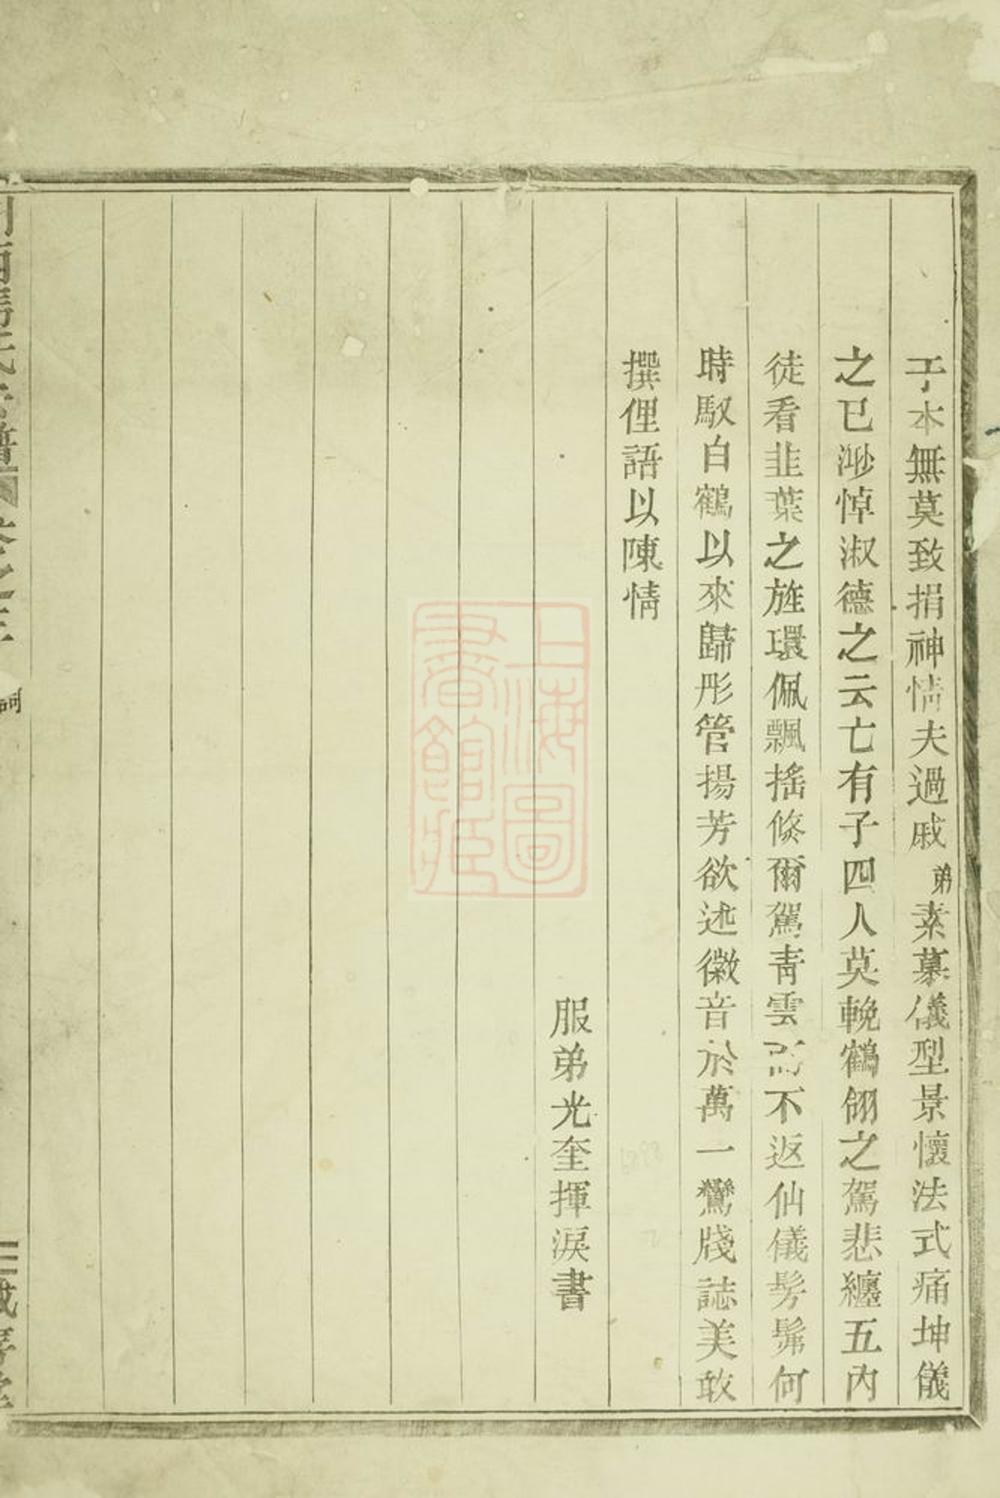 子本無莫致捐神情夫過戚弟素慕儀型景懷法式痛坤儀
之已渺悼淑德之云亡有子四人莫輓鶴翎之駕悲纏五內
徒看韭葉之旌環佩飄搖倐爾駕青雲而不返仙儀髣髴何
時馭白鶴以來歸彤管揚芳欲述徽音於萬一鸞牋誌美敢
撰俚語以陳情
服弟光奎揮淚書
上海圖
書館藏